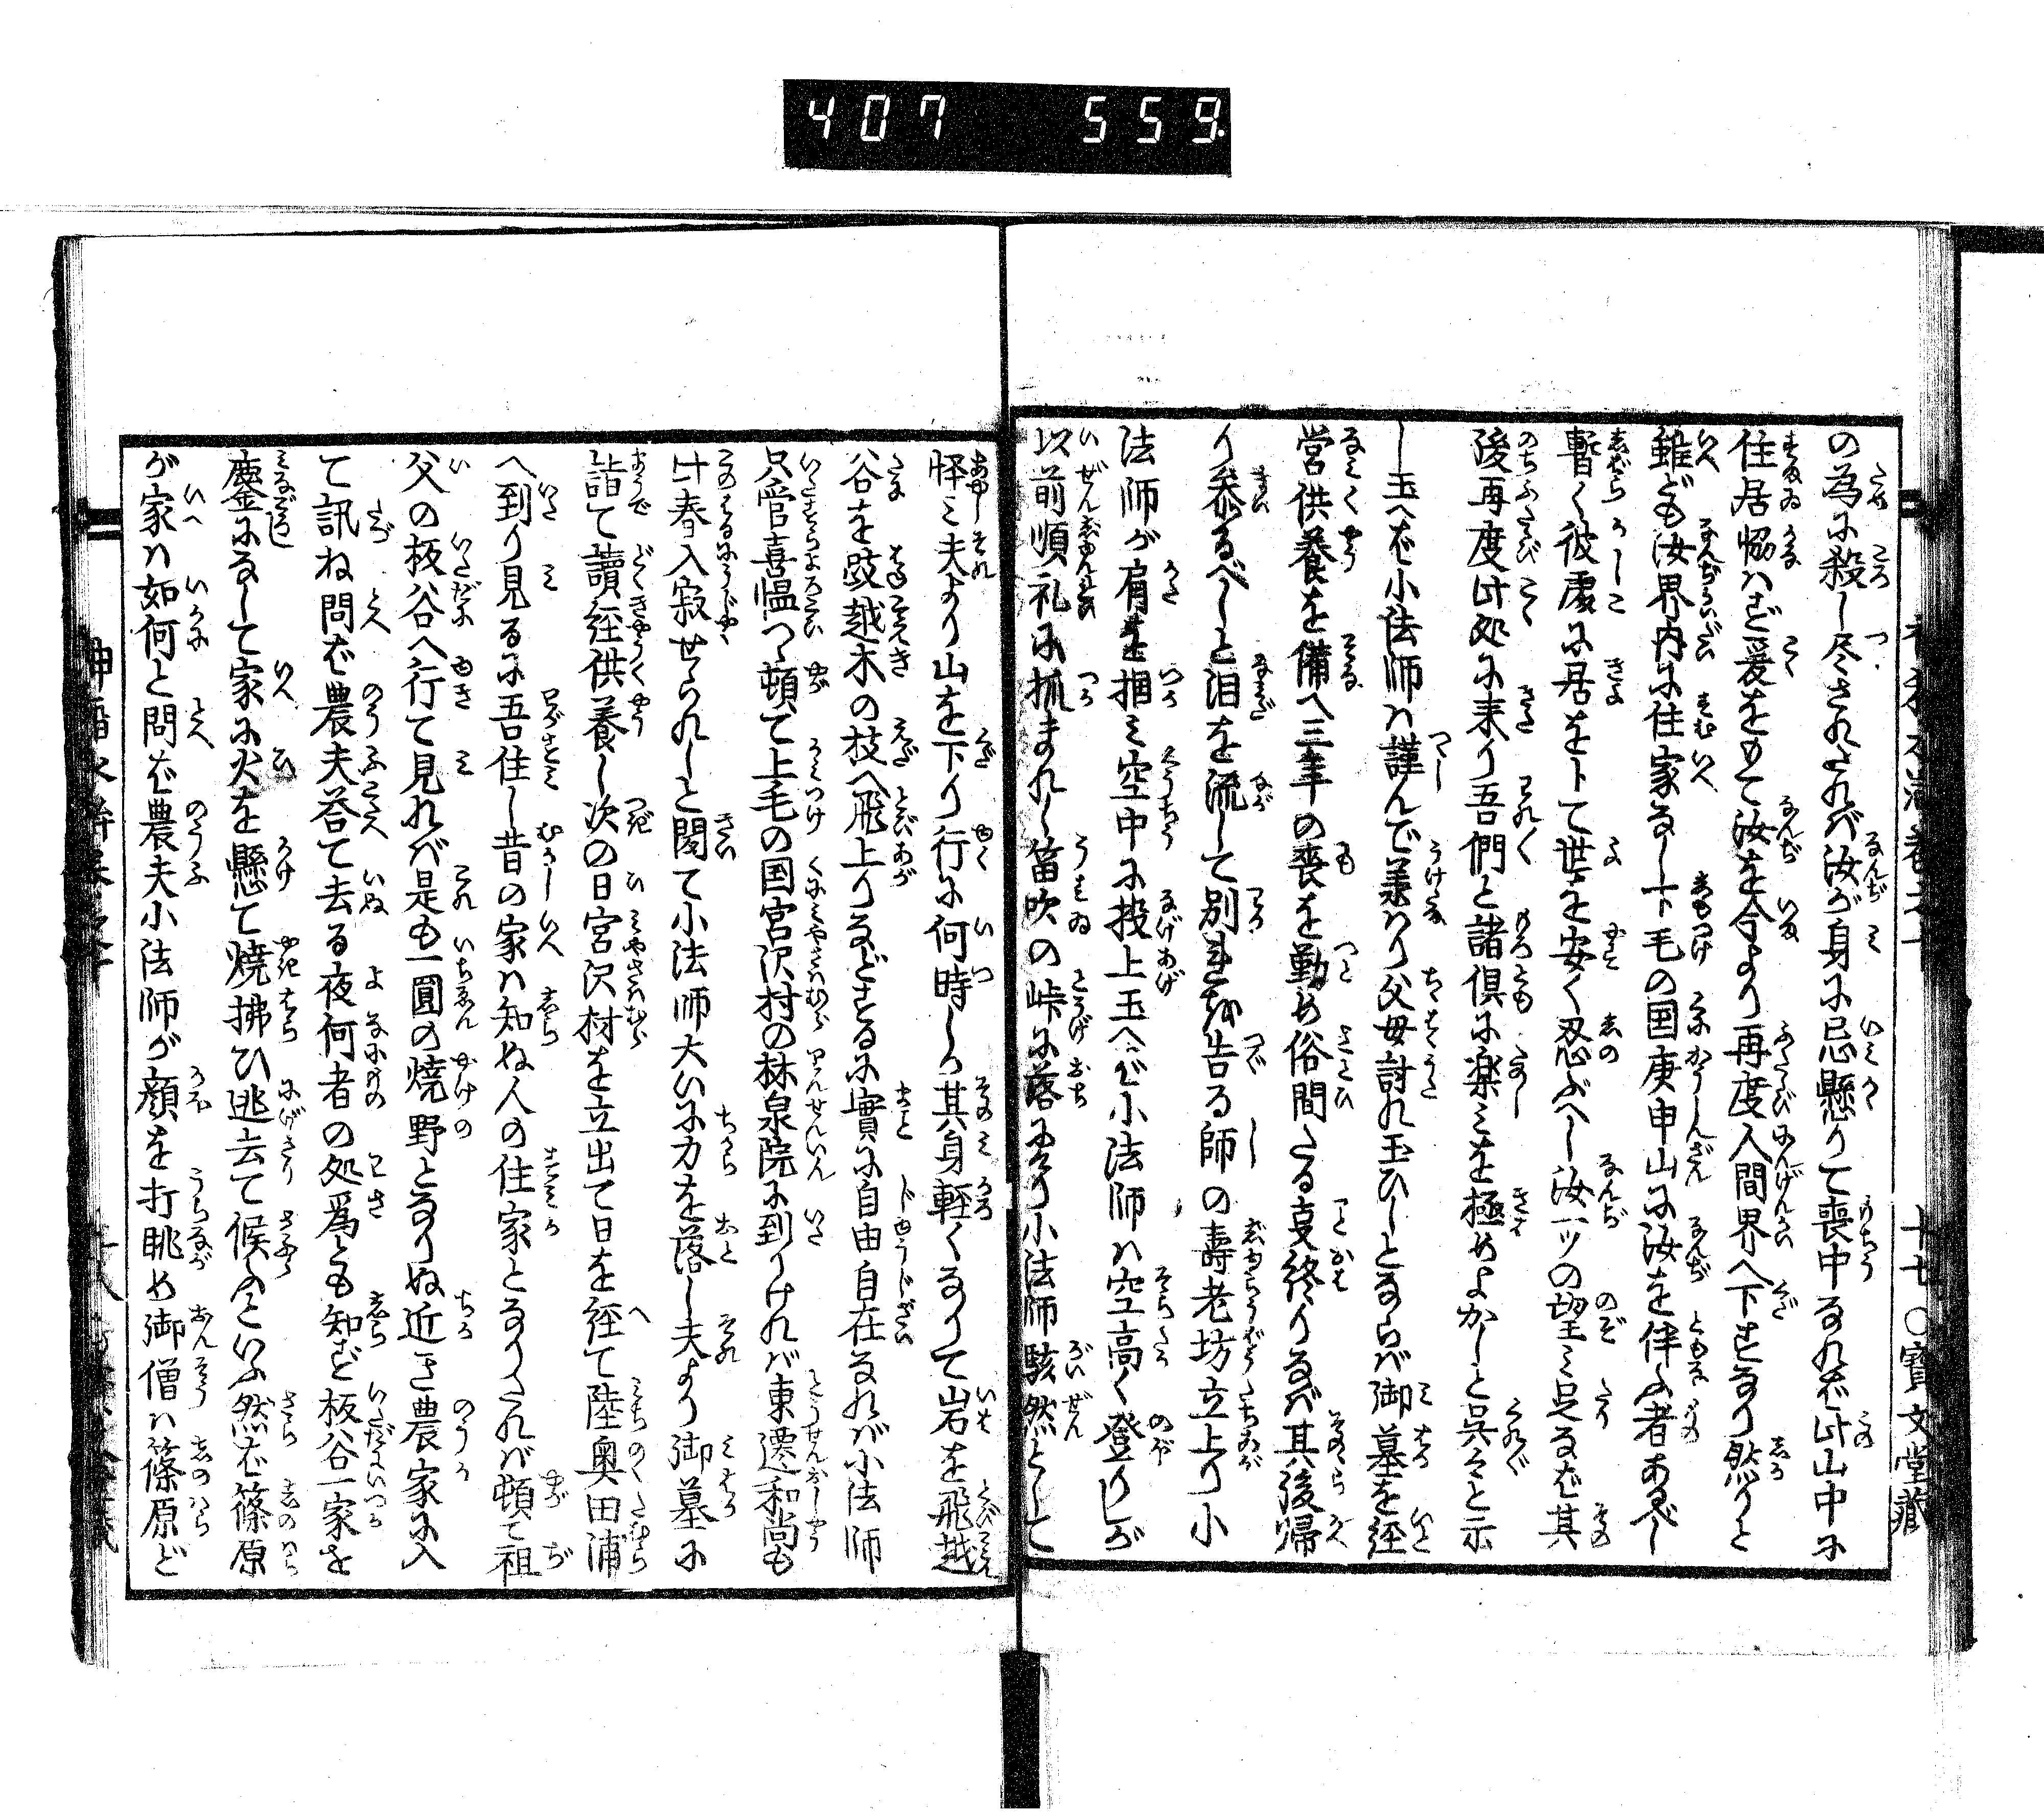 407 559
の為に殺し尽されたれバ汝が身に忌懸りて喪中なれバ此山中に
住居協ハず爰をもて汝を今より再度人間界へ下すなり然りと
雖ども汝界内に住家なし下毛の国庚申山に汝を伴ふ者あるべし
暫く彼處に居を卜て世を安く忍ぶべし汝一ッの望ミ足なバ其
後再度此処に来り吾們と諸倶に楽ミを極めよかしと呉々と示
し玉へバ小法師ハ謹んで義ハり父母討れ玉ひしとならバ御墓を経
営供養を備へ三年の喪を勤め俗間たる㕝終りなバ其後帰
り参るべしと泪を流して別れを告る師の壽老坊立上り小
法師が肩を掴ミ空中に投上玉へバ小法師ハ空高く登りしが
以前順礼に抓まれし笛吹の峠に落にけり小法師駭然として
十七〇寳文堂蔵
怪ミ夫より山を下り行に何時しか其身軽くなりて岩を飛越
谷を跂越木の枝へ飛上りなどするに實に自由自在なれバ小法師
只管喜愠つヽ頓て上毛の国宮沢村の林泉院に到りけれバ東遷和尚も
此春入寂せられしと聞て小法師大いに力を落し夫より御墓に
詣て讀経供養し次の日宮沢村を立出て日を経て陸奥田浦
へ到り見るに吾住し昔の家ハ知ぬ人の住家となりたれバ頓て祖
父の板谷へ行て見れバ是も一圓の焼野となりぬ近き農家に入
て訊ね問バ農夫荅て去る夜何者の処爲とも知ず板谷一家を
鏖になして家に火を懸て焼拂ひ迯去て候ふといふ然バ篠原
が家ハ如何と問バ農夫小法師が顔を打眺め御僧ハ篠原ど